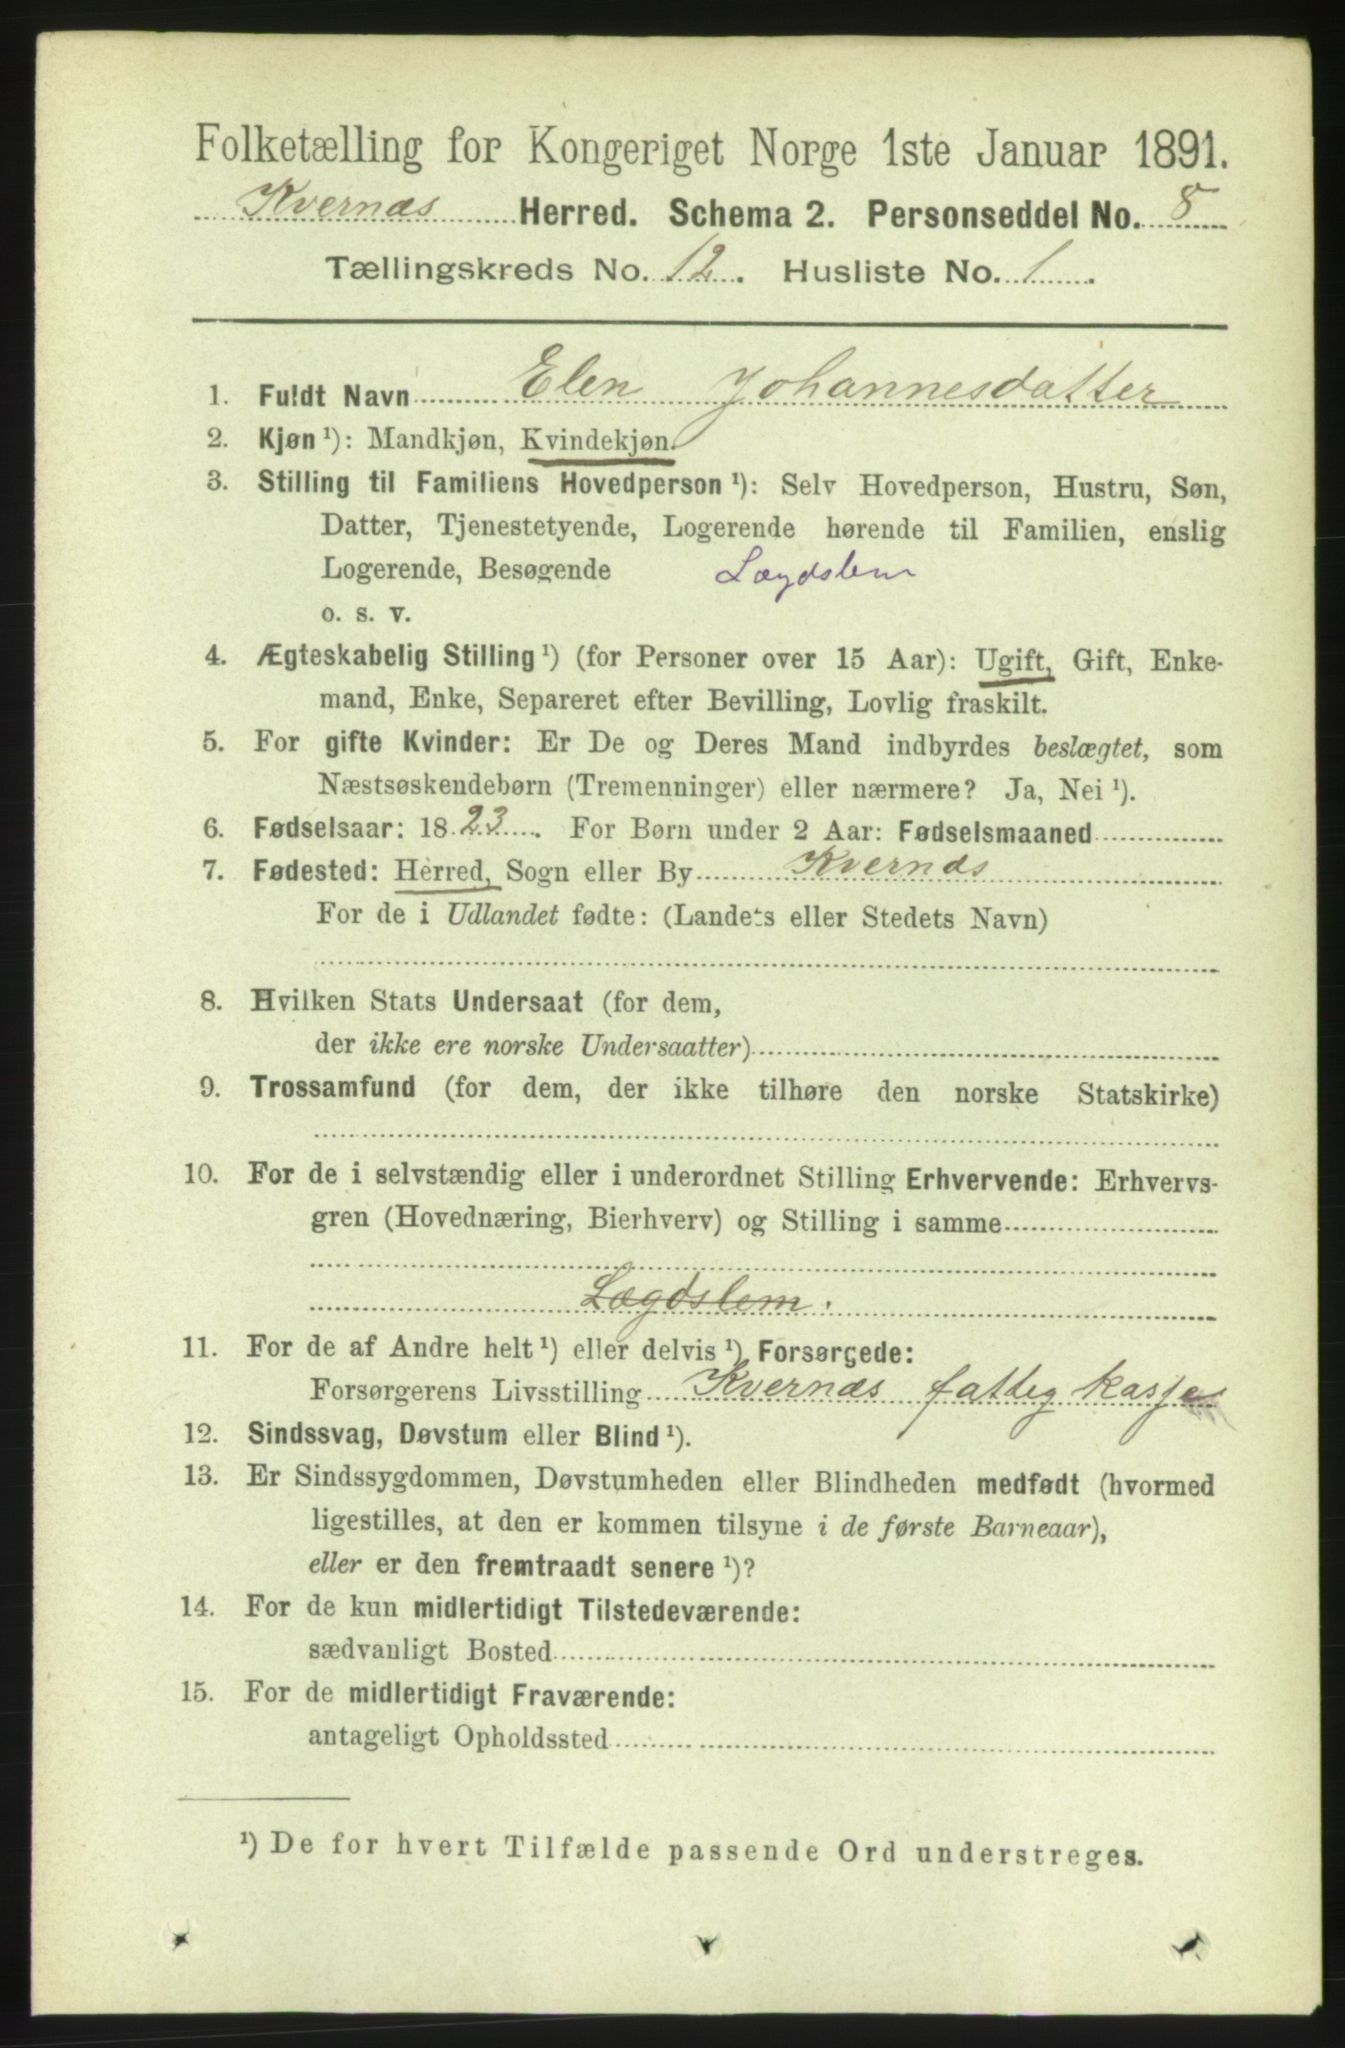 Folketælling for Kongeriget Norge 1ste Januar 1891.
Kvernæs Herred. Schema 2. Personseddel No. 8
Tællingskreds No. 12. Husliste No. 1.
1. Fuldt Navn Elen Johannesdatter
2. Kjøn ¹): Mandkjøn, Kvindekjøn.
3. Stilling til Familiens Hovedperson ¹): Selv Hovedperson, Hustru, Søn,
Datter, Tjenestetyende, Logerende hørende til Familien, enslig
Logerende, Besøgende Lægdslem
o. s. v.
4. Ægteskabelig Stilling ¹) (for Personer over 15 Aar): Ugift, Gift, Enke-
mand, Enke, Separeret efter Bevilling, Lovlig fraskilt.
5. For gifte Kvinder: Er De og Deres Mand indbyrdes beslægtet, som
Næstsøskendebørn (Tremenninger) eller nærmere? Ja, Nei ¹).
6. Fødselsaar: 1823. For Børn under 2 Aar: Fødselsmaaned
7. Fødested: Herred, Sogn eller By Kvernæs
For de i Udlandet fødte: (Landets eller Stedets Navn)
8. Hvilken Stats Undersaat (for dem,
der ikke ere norske Undersaatter)
9. Trossamfund (for dem, der ikke tilhøre den norske Statskirke)
10. For de i selvstændig eller i underordnet Stilling Erhvervende: Erhvervs-
gren (Hovednæring, Bierhverv) og Stilling i samme
Lægdslem.
11. For de af Andre helt ¹) eller delvis ¹) Forsørgede:
Forsørgerens Livsstilling Kvernæs fattig kasse
12. Sindssvag, Døvstum eller Blind ¹).
13. Er Sindssygdommen, Døvstumheden eller Blindheden medfødt (hvormed
ligestilles, at den er kommen tilsyne i de første Barneaar),
eller er den fremtraadt senere ¹)?
14. For de kun midlertidigt Tilstedeværende:
sædvanligt Bosted
15. For de midlertidigt Fraværende:
antageligt Opholdssted
¹) De for hvert Tilfælde passende Ord understreges.